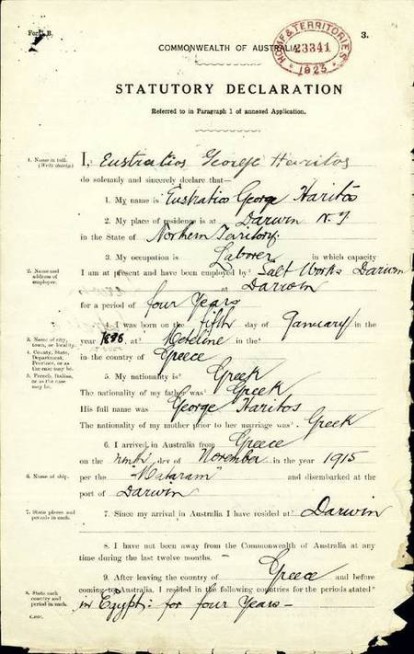 Form B.
3.
COMMONWEALTH OF AUSTRALIA
HOME & TERRITORIES
23341
1925
STATUTORY DECLARATION
Referred to in Paragraph 1 of annexed Application.
1. Name in full.
I, Eustratios George Haritos
do solemnly and sincerely declare that—
1. My name is Eustratios George Haritos
2. My place of residence is at Darwin N.T
in the State of Northern Territory.
3. My occupation is Laborer in which capacity
2. Name and address of employer.
I am at present and have been employed by Salt Works Darwin
at Darwin
for a period of four Years
I was born on the fifth day of January in the
3. Name of city, town, or locality.
year 1896, at Meteline in the
4. County, State, Department, Province, or as the case may be.
in the country of Greece
5. French, Italian, or as the case may be.
5. My nationality is Greek
The nationality of my father was Greek
His full name was George Haritos
The nationality of my mother prior to her marriage was Greek
6. I arrived in Australia from Greece
on the ninth day of November in the year 1915
6. Name of ship.
per the "Mataram" and disembarked at the
port of Darwin
7. State places and periods in each.
7. Since my arrival in Australia I have resided at Darwin
8. I have not been away from the Commonwealth of Australia at any
time during the last twelve months.
9. After leaving the country of Greece and before
8. State each country and period in each.
coming to Australia, I resided in the following countries for the periods stated
in Egypt: for four Years—